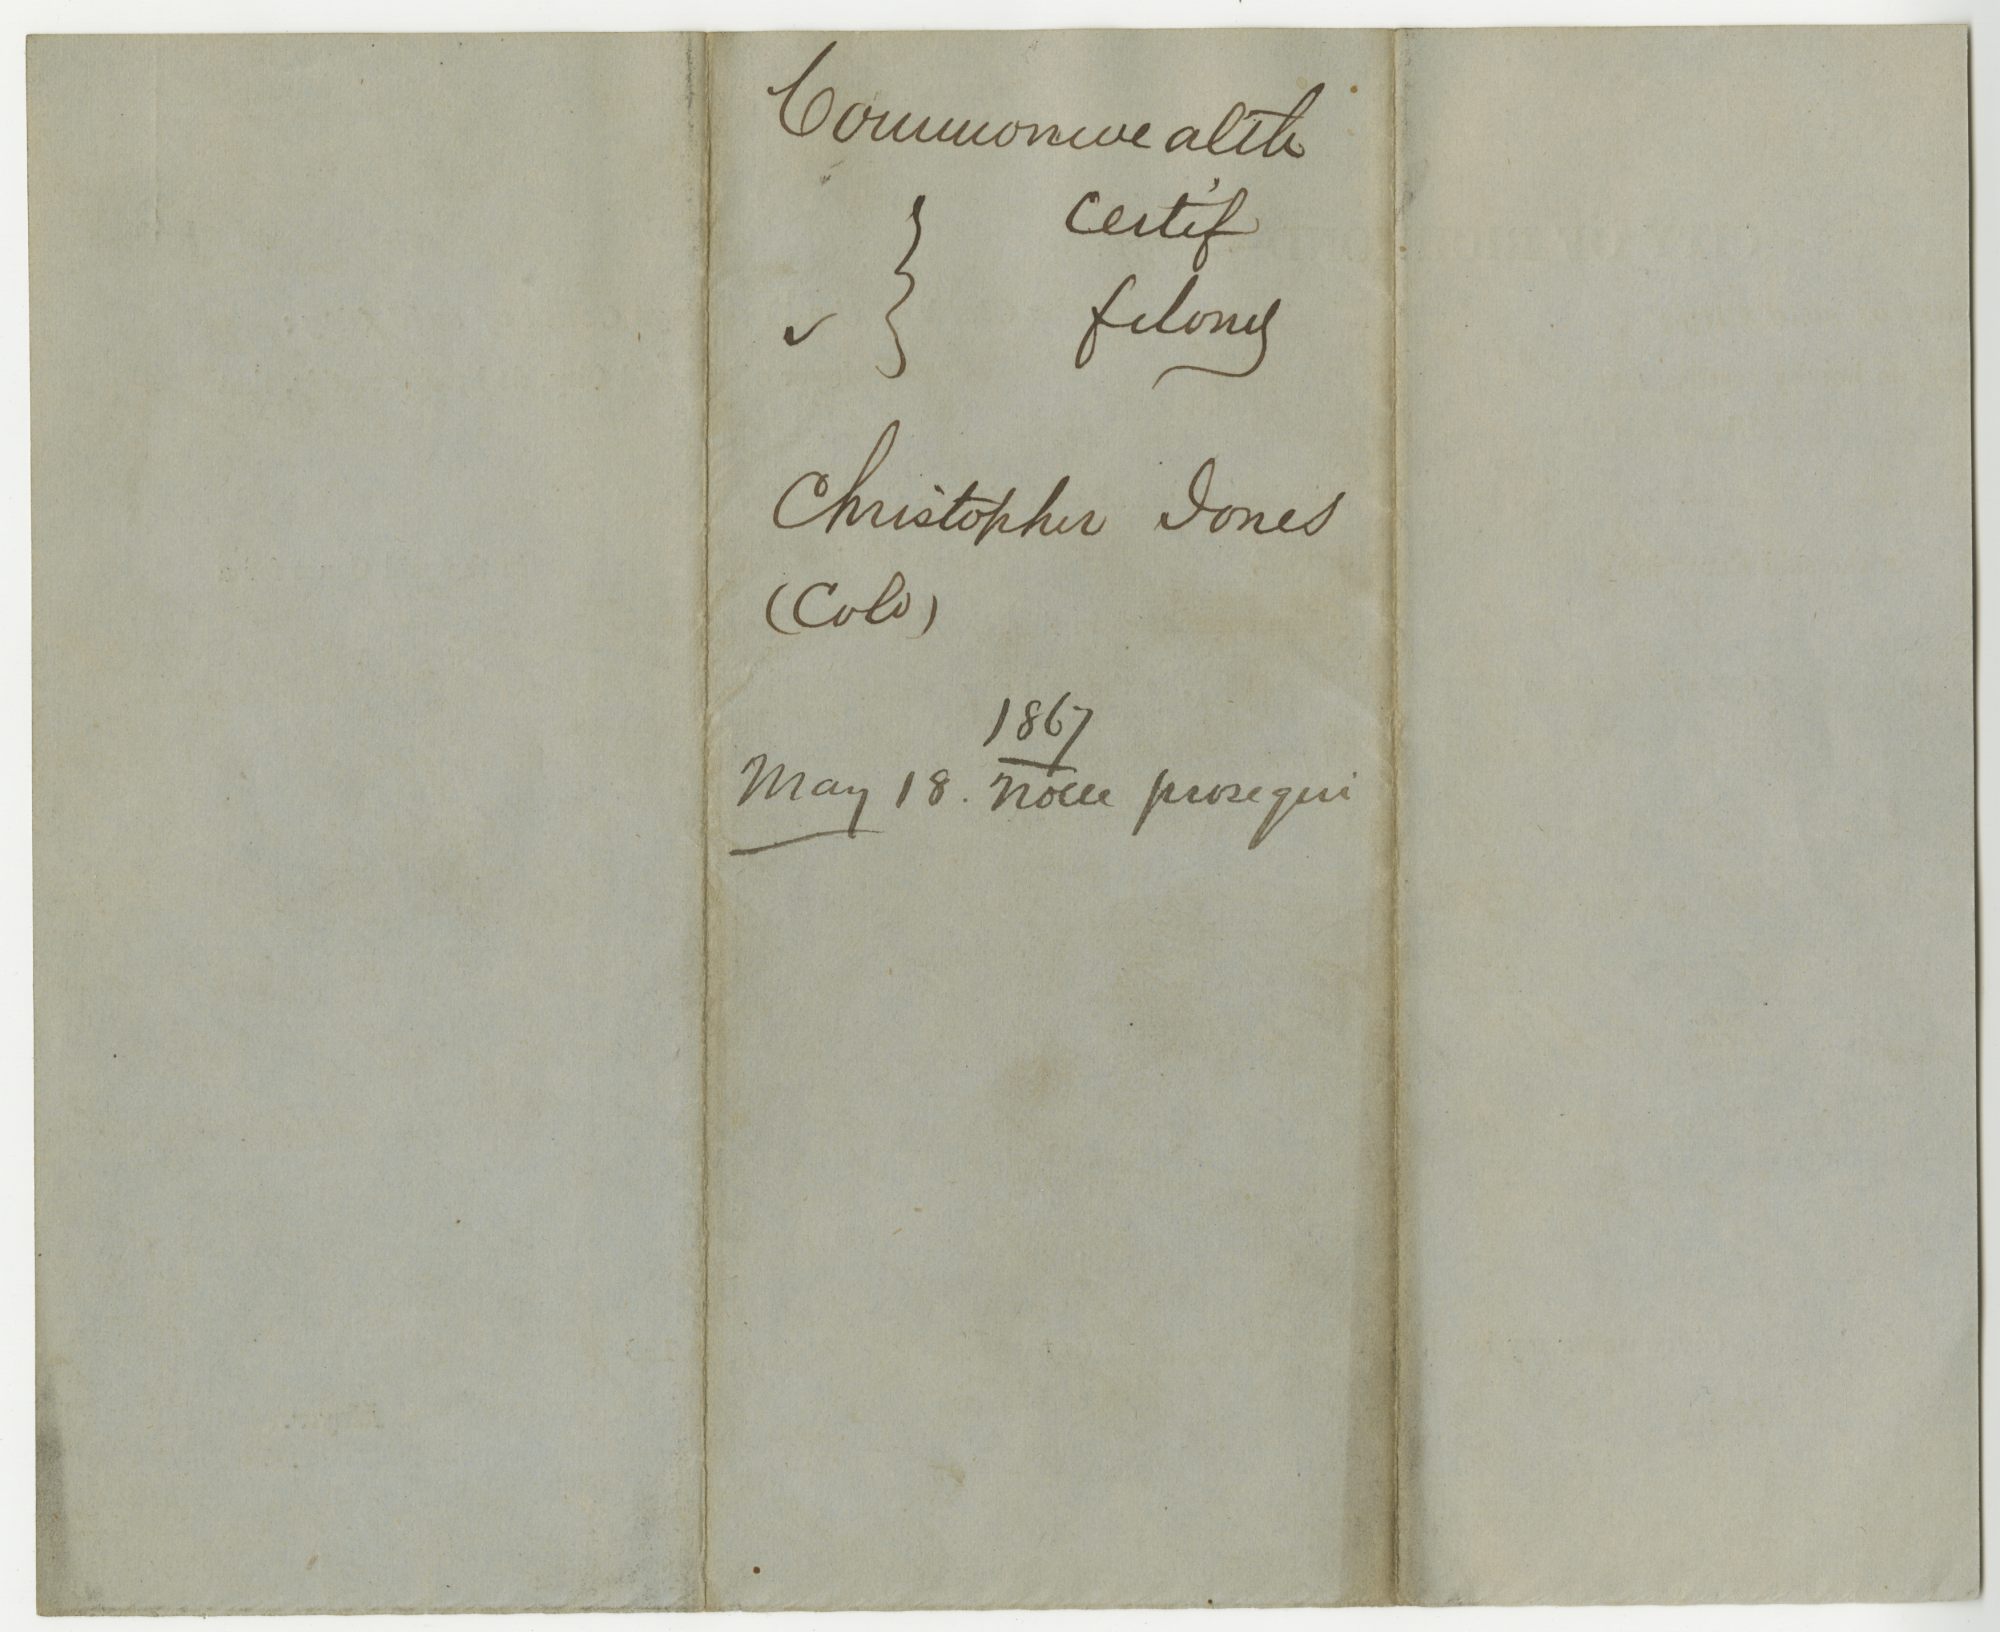 Commonwealth
certif
v } felony
Christopher Jones
(Cold)
1867
May 18. Nolle prosequi